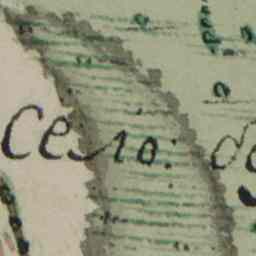 село: де